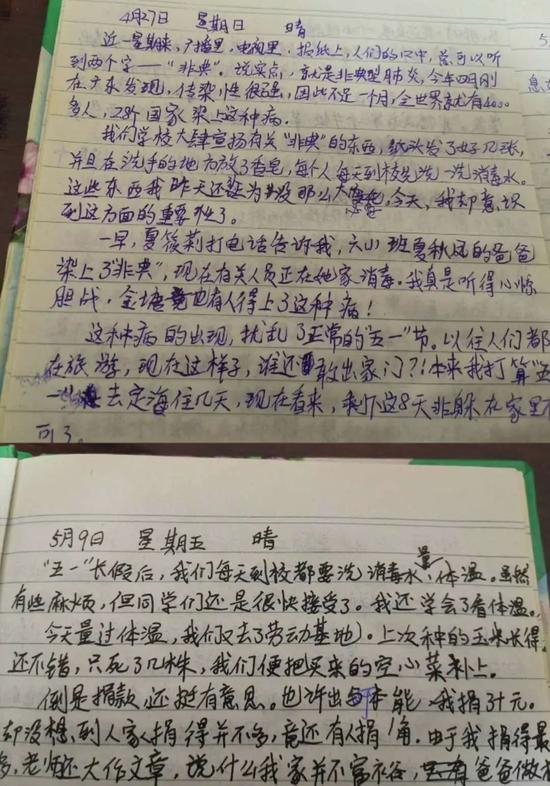 4月27日 星期日 晴
近一星期来,广播里,电视里,报纸上,人们的口中,总可以听
到两个字——"非典"。说实点,就是非典型肺炎,今年四月刚
在广东发现,传染性很强,因此不足一个月,全世界就有4000
多人,28个国家染上这种病。
我们学校大肆宣扬有关"非典"的东西,纸头发了好几张,
并且在洗手的地方放了香皂,每个人每天到校先洗一洗消毒水。
这些东西我昨天还认为没那么大,今天,我却意识
到这方面的重要性了。
一早,夏筱莉打电话告诉我,六山班夏秋凤的爸爸
染上了"非典",现在有关人员正在她家消毒。我真是听得心惊
胆战,金塘竟也有人得上了这种病!
这种病的出现,扰乱了正常的"五一"节。以往人们都
在旅游,现在这样子,谁还敢出家门?!本来我打算"五
一"去定海住几天,现在看来,剩下这8天非躲在家里不
可了。
5月9日 星期五 晴
"五一"长假后,我们每天到校都要洗消毒水,量体温。虽然
有些麻烦,但同学们还是很快接受了。我还学会了看体温。
今天量过体温,我们又去了劳动基地)。上次种的玉米长得
还不错,只死了几株,我们便把买来的空心菜补上。
倒是捐款,还挺有意思。也许出于本能,我捐了3十元。
却没想到人家捐得并不多,竟还有人捐1角。由于我捐得最
多,老师还大作文章,说什么我家并不富裕,爸爸做